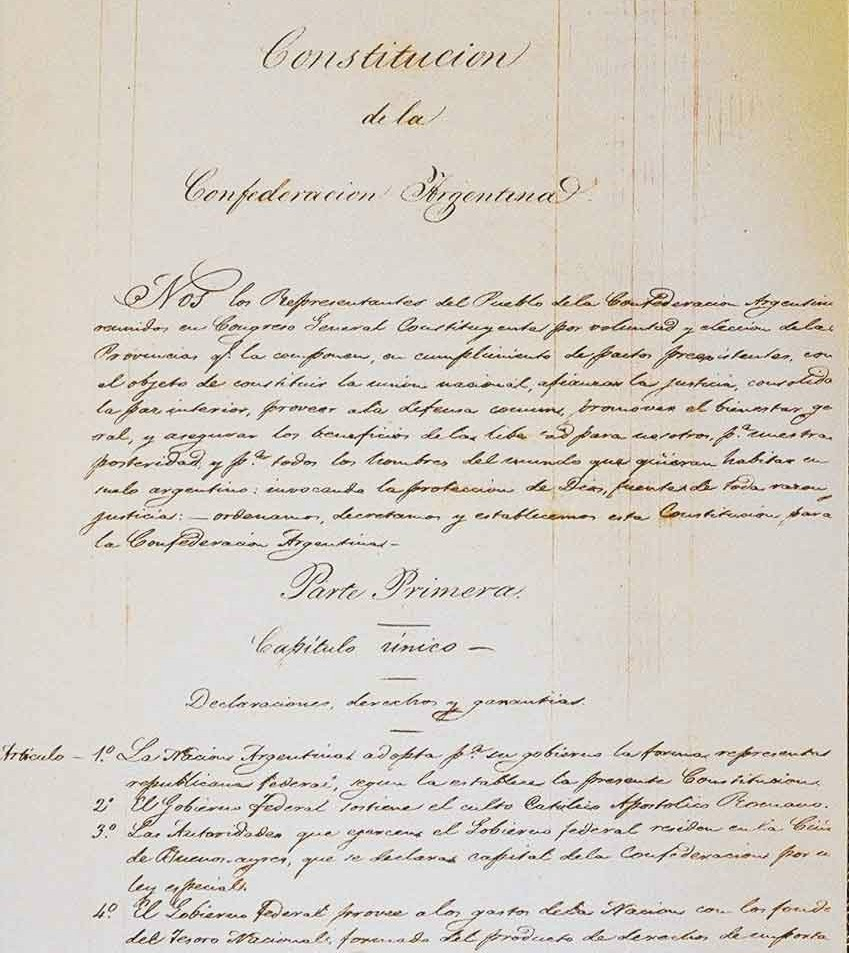 Constitucion
de la
Confederacion Argentina.
Nos los Representantes del Pueblo de la Confederacion Argentin
reunidos en Congreso General Constituyente por voluntad y eleccion de las
Provincias qe. la componen, en cumplimiento de pactos preexistentes, con
el objeto de constituir la union nacional, afianzar la justicia, consolida
la paz interior, proveer a la defensa comun, promover el bienestar ge
ral, y asegurar los beneficios de la libertad para nosotros, pa. nuestra
posteridad, y pa. todos los hombres del mundo que quieran habitar en
suelo argentino: invocando la proteccion de Dios, fuente de toda razon
justicia: — ordenamos, decretamos y establecemos esta Constitucion para
la Confederacion Argentina —
Parte Primera.
Capítulo único —
Declaraciones, derechos y garantias.
Articulo — 1.º La Nacion Argentina adopta pa. su gobierno la forma representa
republicana federal, segun la establece la presente Constitucion.
2º El Gobierno federal sostiene el culto Catolico Apostolico Romano.
3.º Las Autoridades que ejercen el Gobierno federal residen en la Ciu
de Buenos-ayres, que se declara capital de la Confederacion por u
ley especial.
4.º El Gobierno federal provee a los gastos de la Nacion con los fondo
del Tesoro Nacional, formado del producto de derechos de importa